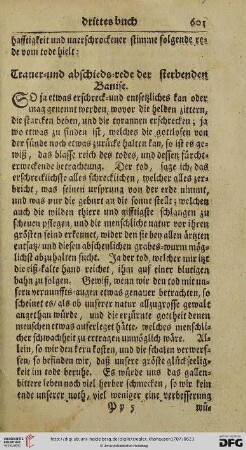 drittes buch 601
hafftigkeit und unerschrockener stimme folgende re-
de vom tode hielt:
Trauer-und abschieds-rede der sterbenden
Banise.
SO ja etwas erschreck- und entsetzliches kan oder
mag genennet werden, wovor die helden zittern,
die starcken beben, und die tyrannen erschrecken; ja
wo etwas zu finden ist, welches die gottlosen von
der sünde noch etwas zurücke halten kan, so ist es ge-
wiß, das blasse reich des todes, und dessen fürcht-
erweckende betrachtung. Der tod, sage ich, das
erschrecklichste aller schrecklichen, welcher alles zer-
bricht, was seinen ursprung von der erde nimmt,
und was pur die geburt an die sonne stellt; welchen
auch die wilden thiere und gifftigste schlangen zu
scheuen pflegen, und die menschliche natur vor ihren
grösten feind erkennet, wider den sie bey allen ärzten
entsatz und diesen abscheulichen grabes-wurm mög-
lichst abzuhalten sucht. Ja der tod, welcher mir itzt
die eiß-kalte hand reichet, ihm auf einer blutigen
bahn zu folgen. Gewiß, wenn wir den tod mit un-
sern vernunffts-augen etwas genauer betrachten, so
scheinet es, als ob unserer natur allzugrosse gewalt
angethan würde, und die erzürnte gottheit denen
menschen etwas auferleget hätte, welches menschli-
cher schwachheit zu ertragen unmöglich wäre. Al-
lein, so wir den kern kosten, und die schalen verwerf-
fen, so befinden wir, daß unsere gröste glückseelig-
keit in dem tode beruhe. Es würde uns das gallen-
bittere leben noch viel herber schmecken, so wir kein
ende unserer noth, viel weniger eine verbesserung
Pp 5 wü-